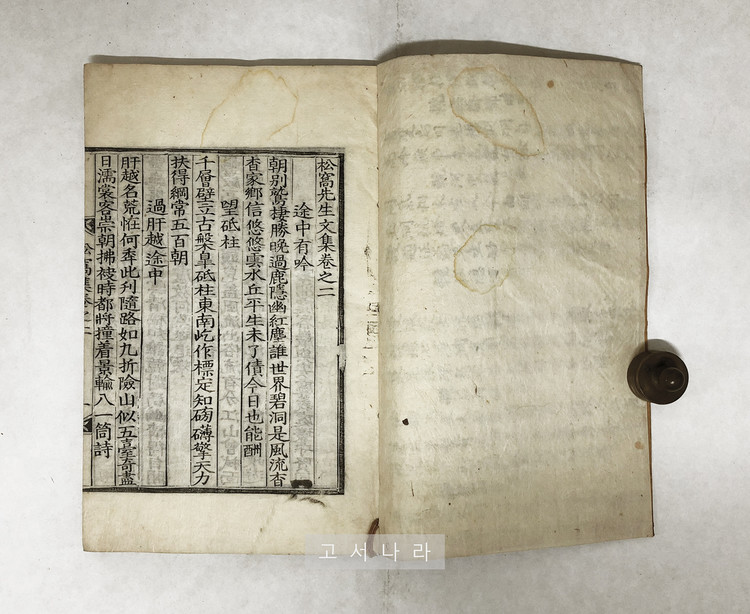 松窩先生文集卷之二
途中有吟
朝別鷲棲勝晚過鹿隱幽紅塵誰世界碧洞是風流杳
杳家鄉信悠悠雲水丘平生未了債今日也能酬
望砥柱
千層壁立古槃皐砥柱東南屹作標定知磅礴擎天力
扶得綱常五百朝
過肝越途中
肝越名荒恠何牽此刋隨路如九折險山似五臺奇盡
日濡裳客崇朝拂袂時都將撞着景輸八一筒詩
松窩集卷之二
一
고서나라